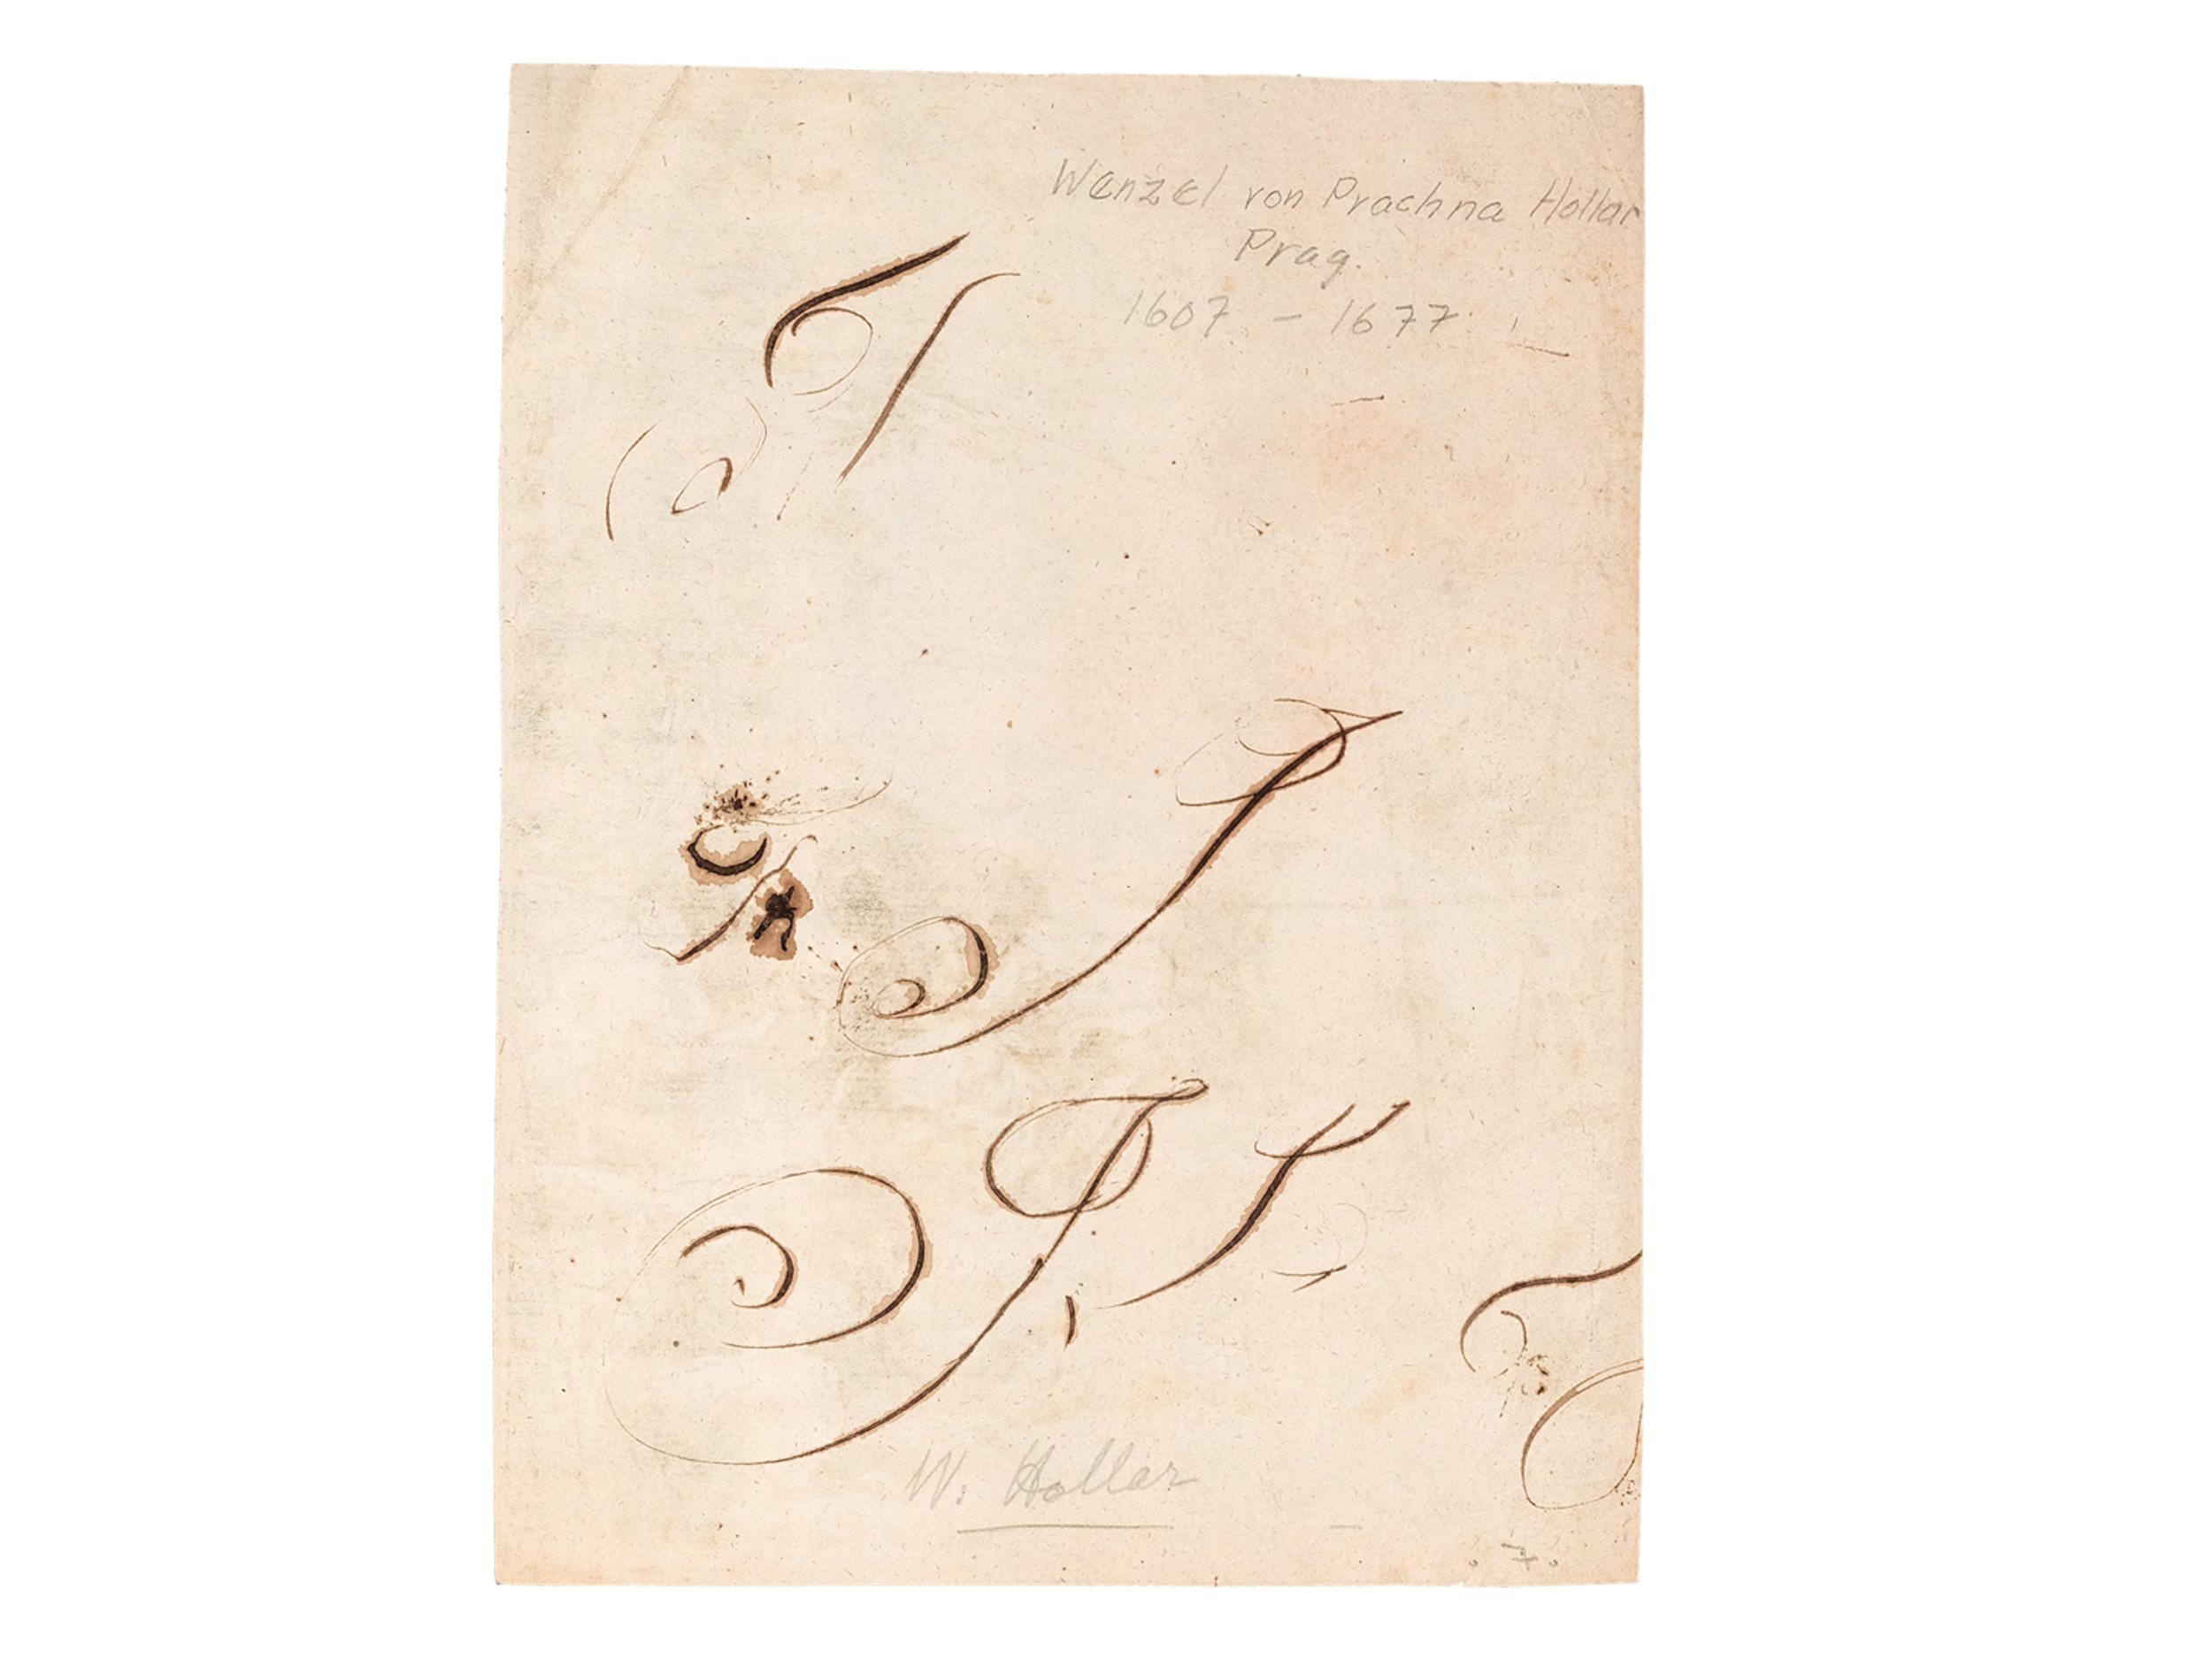 Wenzel von Prachna Hollar
Prag.
1607 - 1677
W. Hollar
. 7 .